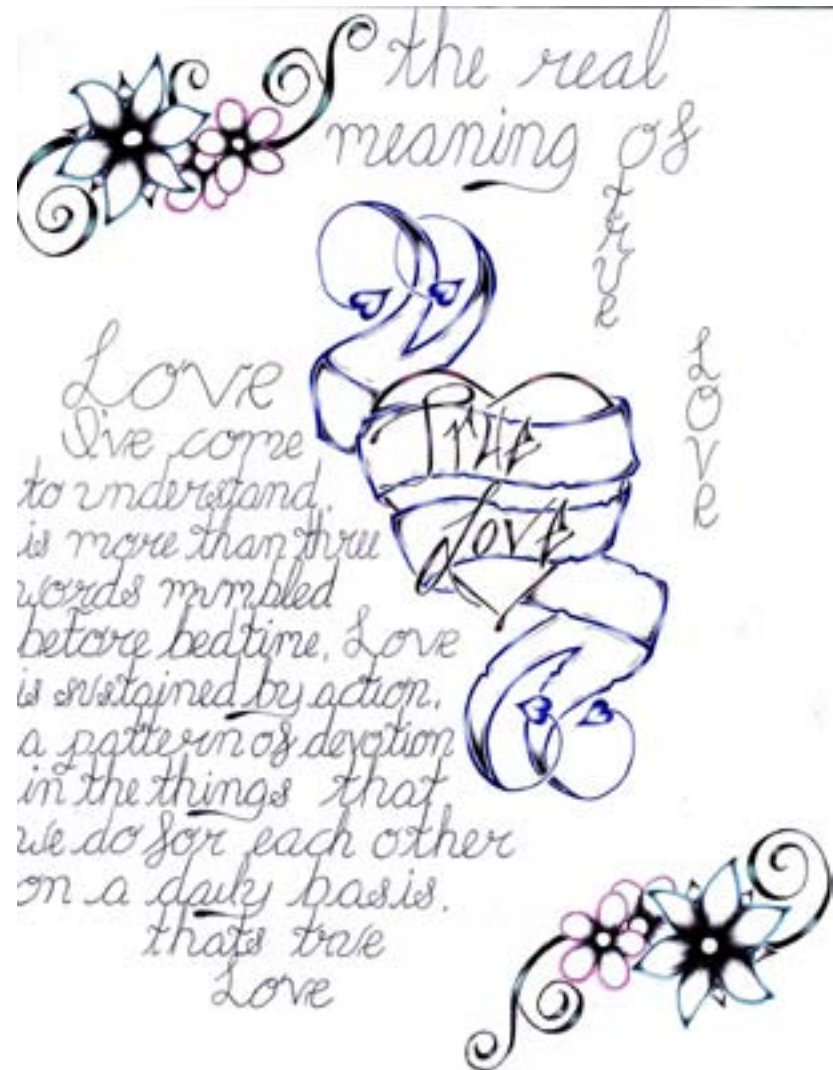 the real
meaning of
true
love
True
Love
Love
I've come
to understand,
is more than three
words mumbled
before bedtime. Love
is sustained by action,
a pattern of devotion
in the things that
we do for each other
on a daily basis.
thats true
Love